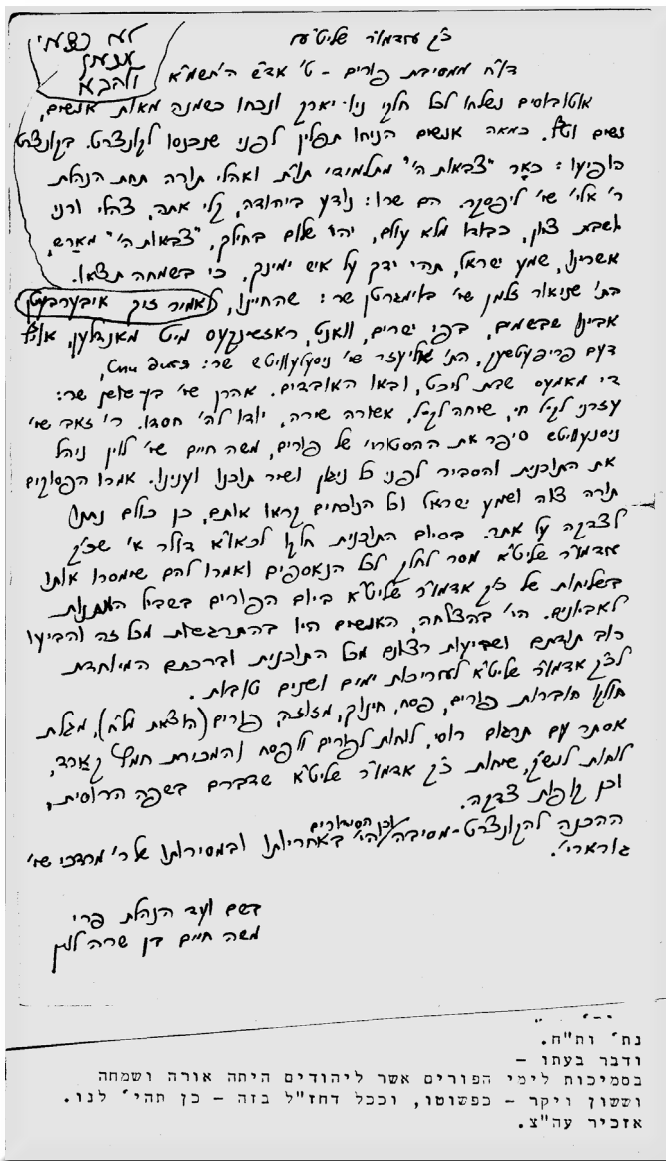 לא כצעתי
אצעק
ולהבא
כ"ק אדמו"ר שליט"א
דו"ח ממסיבת פורים - ט' אד"ש ה'תשמ"א
אוטובוסים נשלחו לכל חלקי ניו-יארק ונכחו כשמנה מאות אנשים,
נשים וטף. כמאה אנשים הניחו תפלין לפני שנכנסו לקונצרט. בקונצרט
הופיעו: כאָר "צבאות ה'" מתלמידי תו"ת ואהלי תורה תחת הנהלת
ר' אלי' שי' ליפסקר. הם שרו: נודע ביהודה, קלי אתה, צהלי ורני
יושבת ציון, כבודו מלא עולם, יהי שלום בחילך, "צבאות ה'" מאַרש,
אשרינו, שמע ישראל, תהי ידך על איש ימינך, כי בשמחה תצאו.
הת' שניאור זלמן שי' בוימגרטן שר: שהחיינו, לאמיר זיך איבערבעטן
אבינו שבשמים, בפי ישרים, וואנט, ראזשינקעס מיט מאנדלען, אויף
דעם פריפעטשעק, הת' אליעזר שי' ניסענעוויטש שר:
די מאמעס שבת ליכט, ובאו האובדים. אהרן שי' בן שושן שר:
עזרני לקל חי, שיחה לקל, אשורה שירה, יודו לה' חסדו. ר' זאב שי'
ניסנעוויטש סיפר את ההסטורי' של פורים, משה חיים שי' לוין ניהל
את התוכנית והסביר לפני כל ניגון ושיר תוכנו וענינו. אמרו הפסוקים
תורה צוה ושמע ישראל וכל הנוכחים קראו אותם, כן כולם נתנו
לצדקה על אתר. בסיום התוכנית חלקו לכאו"א דולר א' שכ"ק
אדמו"ר שליט"א מסר לחלק לכל הנאספים ואמרו להם שימסרו אותו
בשליחות של כ"ק אדמו"ר שליט"א ביום הפורים בשביל המתנות
לאביונים. הי' בהצלחה, האנשים היו בהתרגשות מכל זה והביעו
רוב תודתם ושביעות רצונם מכל התוכנית וברכתם המיוחדת
לכ"ק אדמו"ר שליט"א לאריכות ימים ושנים טובות.
חולקו חוברות פורים, פסח, חינוך, מזוזה, פורים (הוצאת מל"ח), מגלת
אסתר עם תרגום רוסי, לוחות לפורים ולפסח והמכירת חמץ קאַרד,
לוחות לנש"ק, שיחות כ"ק אדמו"ר שליט"א שדברם בשפה הרוסית,
וכן קופות צדקה.
ההכנה להקונצרט-מסיבה וכן הסידורים הי' באחריותו ובמסירותו של ר' מרדכי שי'
גורארי'.
בשם ועד הנהלת פרי
משה חיים בן שרה לוין
נת' ות"ח.
ודבר בעתו -
בסמיכות לימי הפורים אשר ליהודים היתה אורה ושמחה
וששון ויקר - כפשוטו, וככל דחז"ל בזה - כן תהי' לנו.
אזכיר עה"צ.